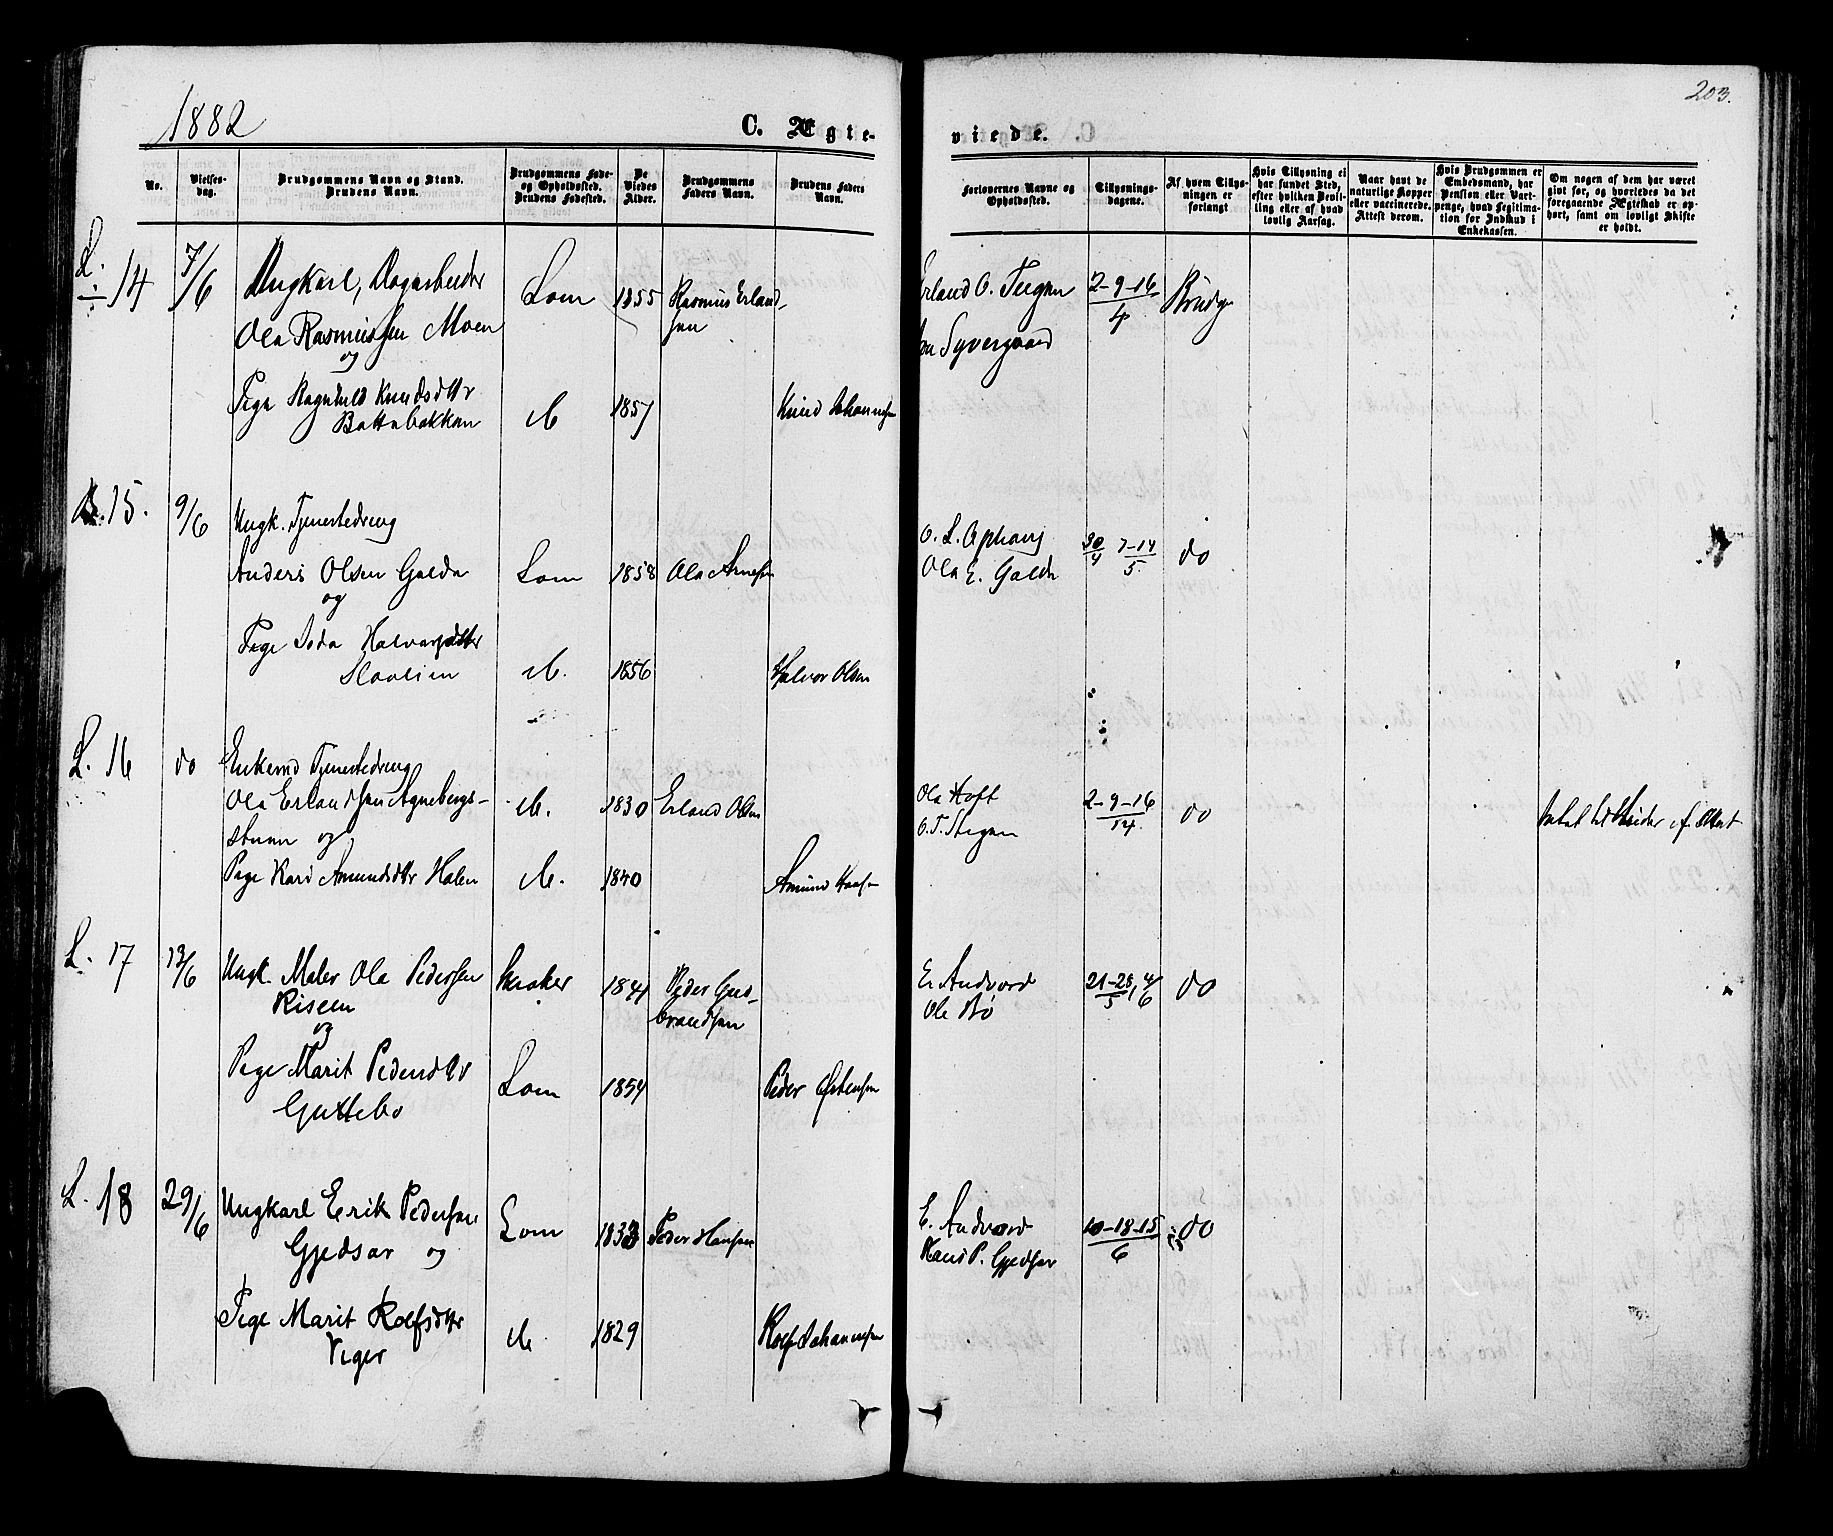 1882
C. Ægte-
viede.
203.
No.
Vielses-
dag.
Brudgommens Navn og Stand.
Brudens Navn.
Brudgommens Føde-
og Opholdssted.
Brudens Fødested.
De
Viedes
Alder.
Brudgommens
Faders Navn.
Brudens Faders
Navn.
Forlovernes Navne og
Opholdssted.
Tillysnings-
dagene.
Af hvem Tillys-
ningen er
forlangt
Hvis Tillysning ei
har fundet Sted,
efter hvilken Bevil-
ling eller af hvad
lovlig Aarsag.
Naar havt de
naturlige Kopper
eller vaccinerede.
Attest derom.
Hvis Brudgommen er
Embedsmand, har
Pension eller Vart-
penge, hvad Legitima-
tion for Indskud i
Enkekassen.
Om nogen af dem har været
gift før, og hvorledes da det
foregaaende Ægteskab er op-
hørt, samt om lovligt Skifte
er holdt.
L. 14 7/6 Ungkarl, Dagarbeider Lom 1855 Rasmus Erland-
sen
Ola Rasmussen Moen
og
Pige Ragnhild Knudsdttr do 1857 Knud Johannesen
Bottebakken
Erland O. 2-9-16/4 Brudg
Syvergaard
15. 9/6 Ungk. Tjenestedreng
Anders Olsen Galde Lom 1858 Ola Arnesen
og
Pige Halvorsdtter
do. 1856 Halvor Olsen
O. L. 30/4 7-14/5 do
Ola E. Galde
L. 16 do Enkemd Tjenestedreng
Ola Erlandsen do. 1830 Erland Olsen
og
Pige Kari Amundsdttr Holen do. 1840 Amund
Ola 2-9-16/14. do
O. T.
L. 17 13/6 Ungk. Maler Ola Pedersen 1841 Peder Gud-
brandsen
Riseen
og
Pige Marit Pedersdttr Lom 1854 Peder Østensen
Guttebo
E. Andvord 21-28/5, 4/6 do
Ole Bø
L. 18 29/6 Ungkarl Erik Pedersen Lom 1833 Peder Hansen
Gjedsar og
Pige Marit Rolfsdttr do 1829 Rolf Johannesen
Viger
E. Andvord 10-18-15/6 do
Hans P. Gjedsar